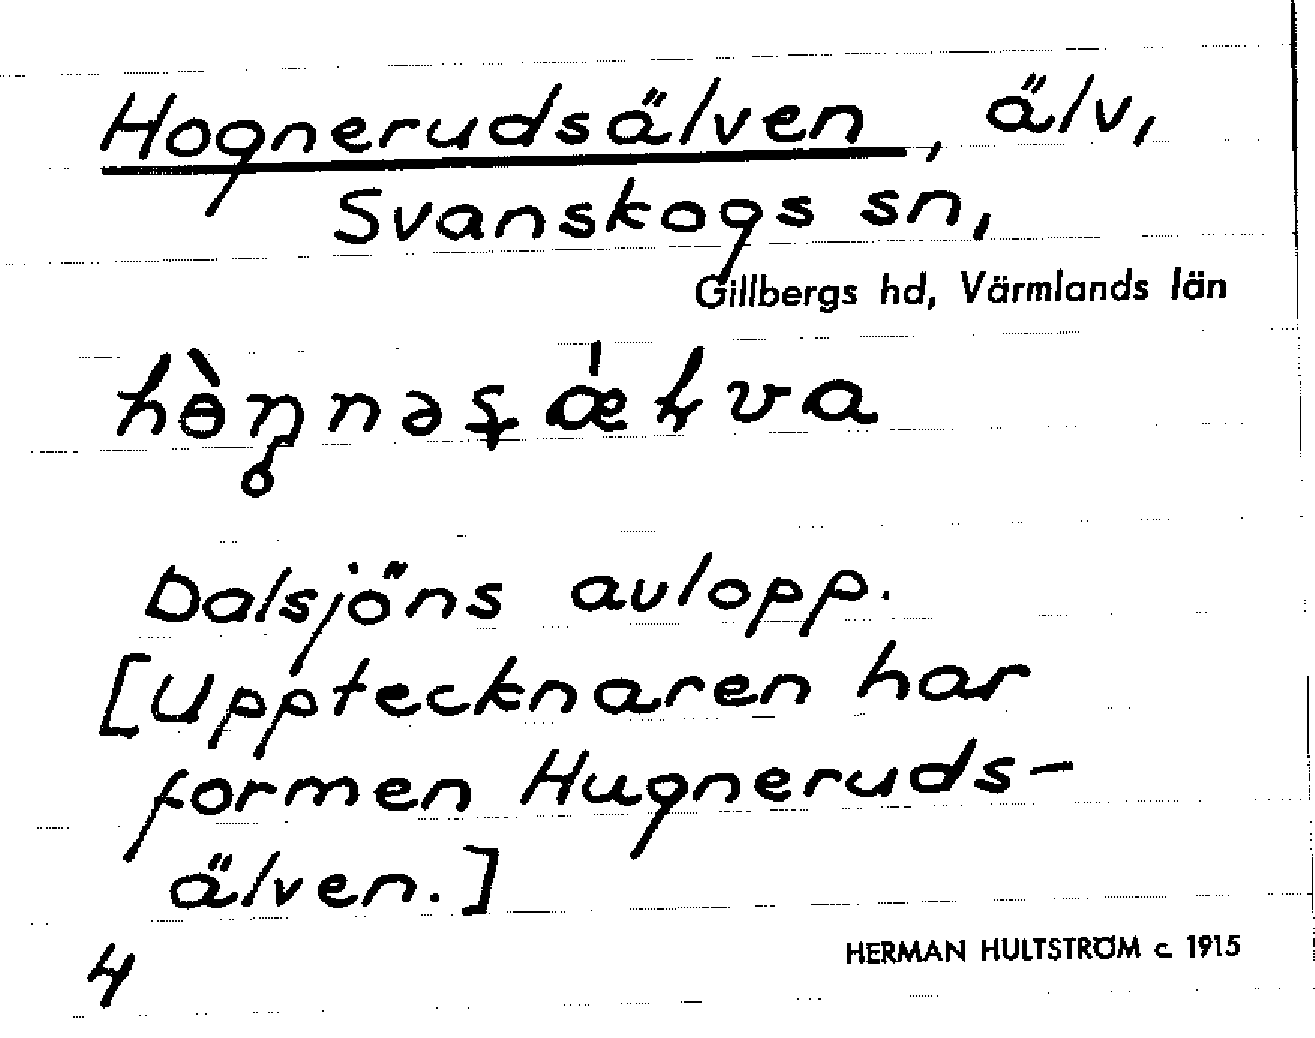 Hognerudsälven, älv,
Svanskogs sn,
Gillbergs hd, Värmlands län
Dalsjöns avlopp.
[Upptecknaren har
formen Hugneruds-
älven.]
4
HERMAN HULTSTRÖM c. 1915